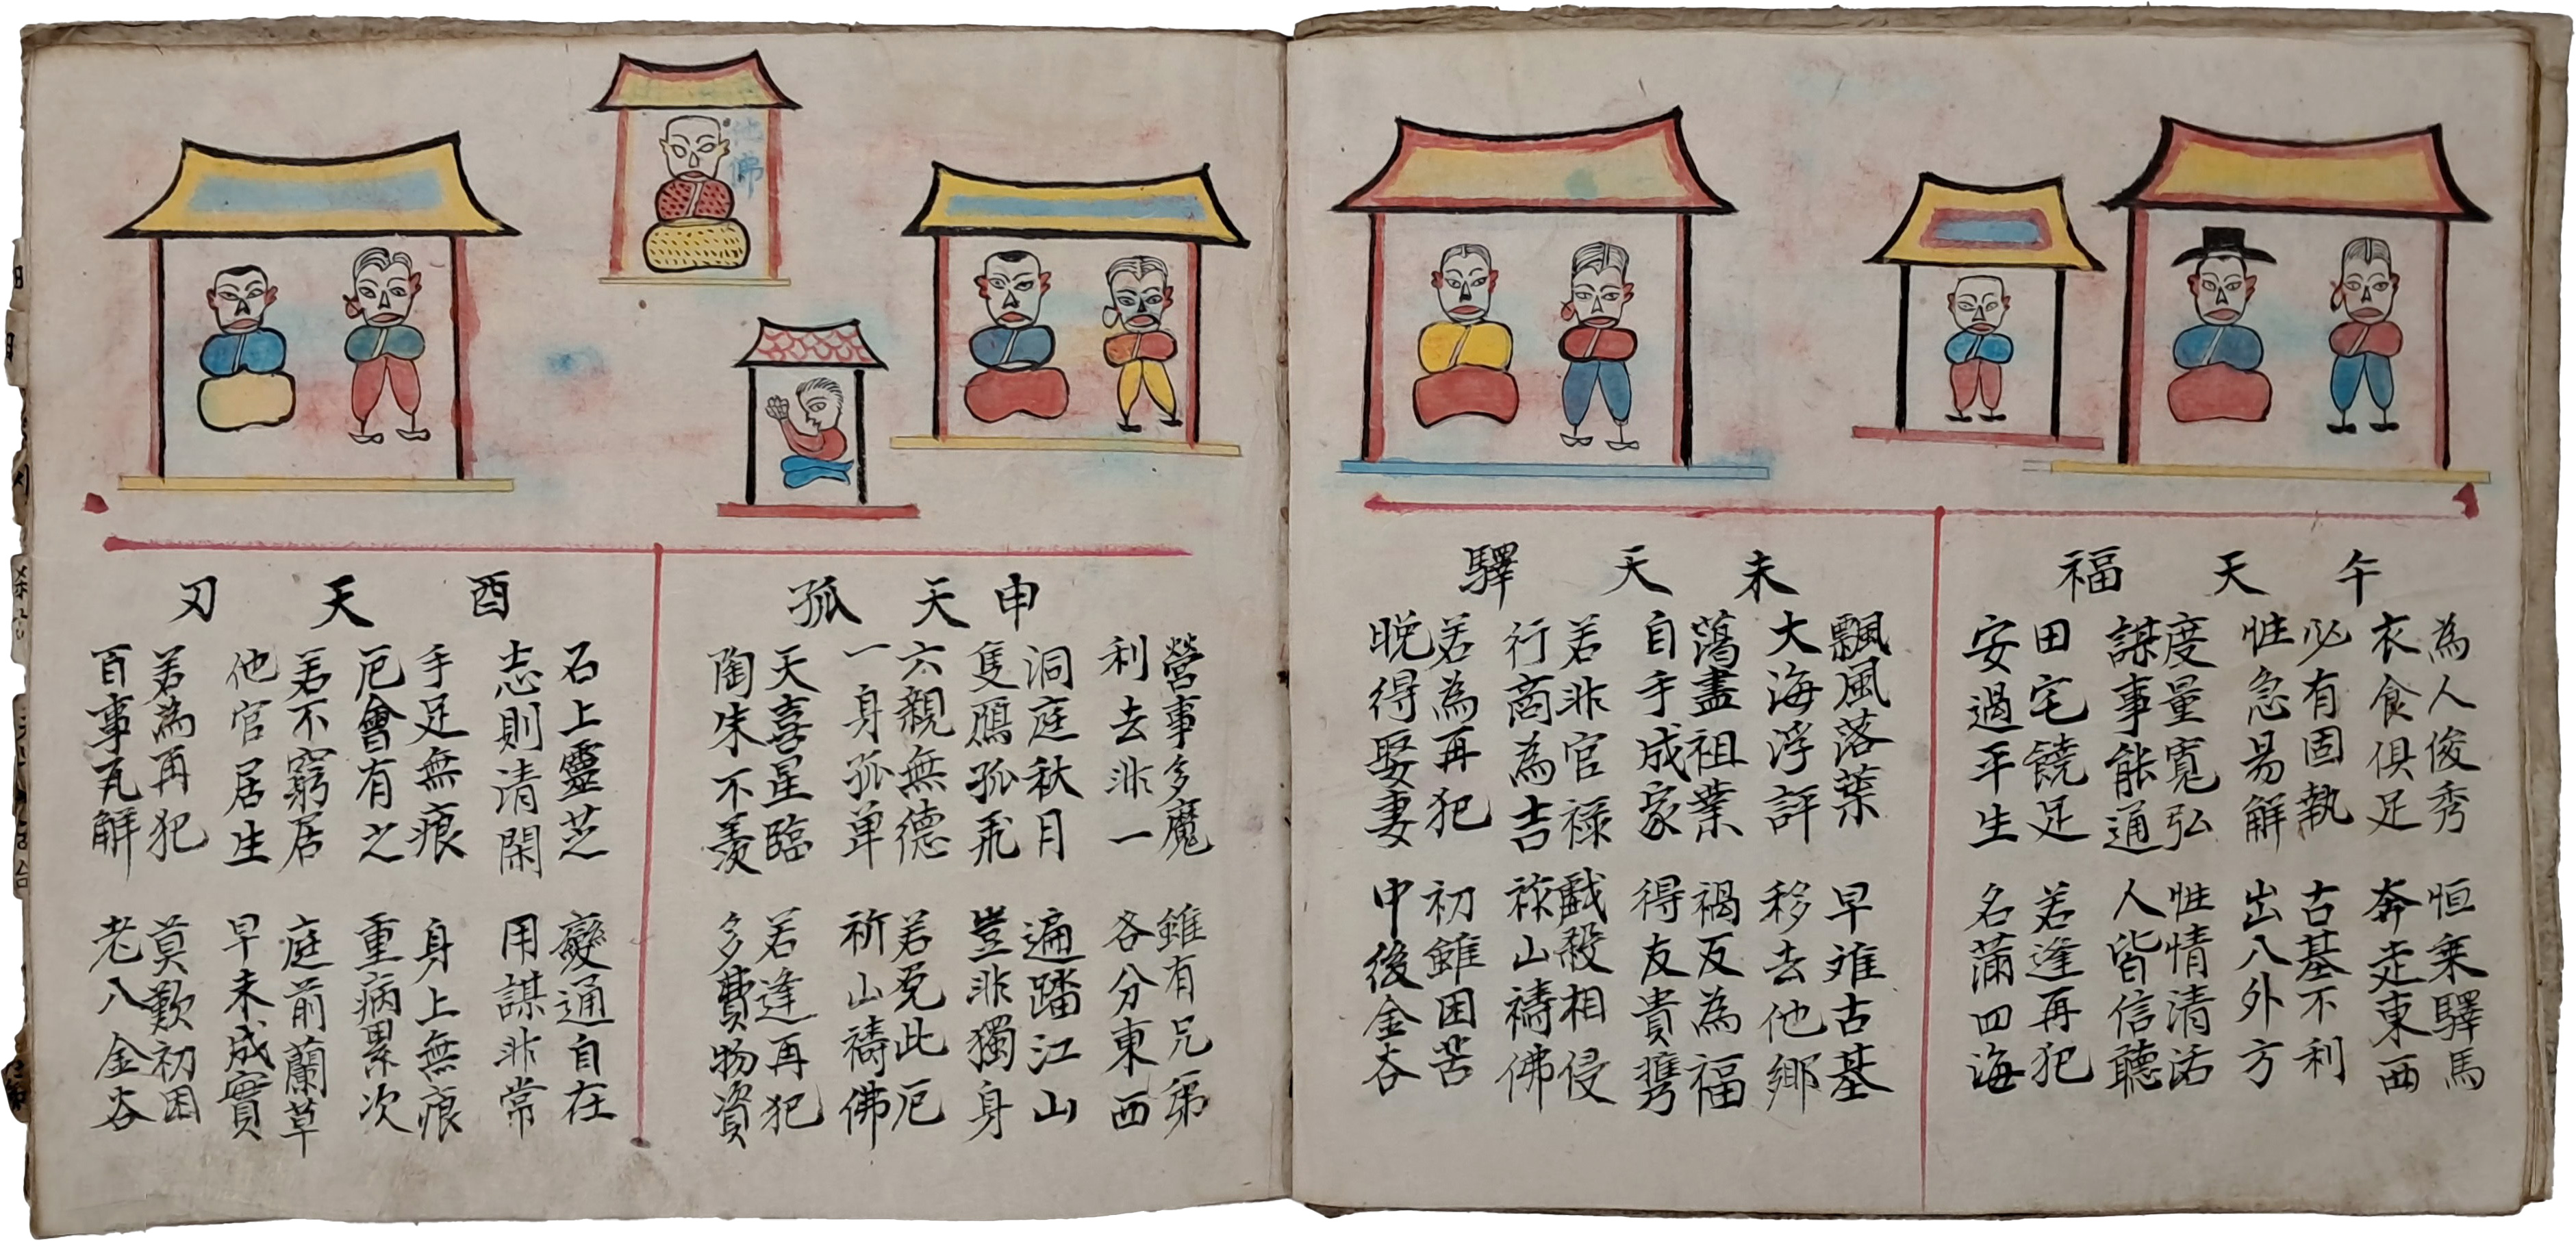 午天福
為人俊秀
衣食俱足
必有固執
性急易解
度量寬弘
謀事能通
田宅饒足
安過平生
恒乗驛馬
奔走東西
古基不利
出入外方
性情清活
人皆信聽
若逢再犯
名滿四海
未天驛
飄風落葉
大海浮評
蕩盡祖業
自手成家
若非官禄
行商為吉
若為再犯
晚得娶妻
早难古基
移去他鄉
禍反為福
得友貴携
戱殺相侵
山禱佛
初雖困苦
中後金谷
佛
申天孤
營事多魔
利去非一
洞庭秋月
隻鴈孤飛
六親無德
一身孤单
天喜星臨
陶朱不羨
雖有兄弟
各分東西
遍踏江山
豈非獨身
若免此厄
祈山禱佛
若逢再犯
多費物資
酉天刃
石上靈芝
志則清閑
手足無痕
厄會有之
若不窮居
他官居生
若為再犯
百事瓦解
變通自在
用謀非常
身上無痕
重病累次
庭前蘭草
早未成實
莫歎初困
老入金谷